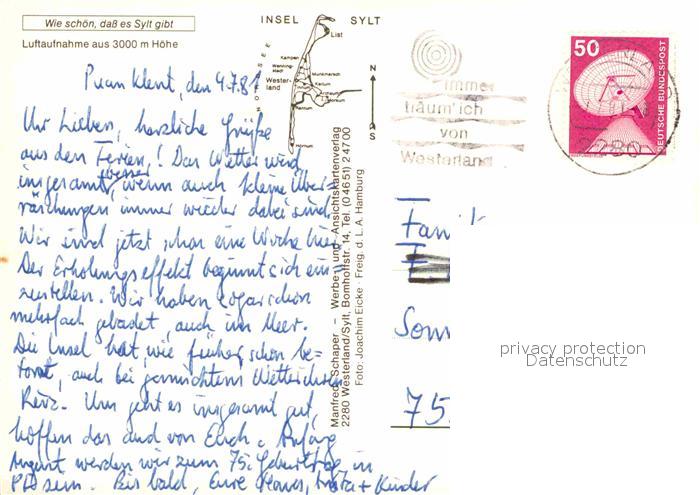 Wie schön, daß es Sylt gibt
Luftaufnahme aus 3000 m Höhe
INSEL SYLT
List
Kampen
Wenning-
stedt
Munkmarsch
Wester-
land
Keitum
Archsum
Morsum
Rantum
Hörnum
NORDSEE
N
S
Puan Klent, den 4.7.81
Ihr Lieben, herzliche Grüße
aus den Ferien! Das Wetter wird
insgesamt besser, wenn auch kleine Über-
raschungen immer wieder dabei sind.
Wir sind jetzt schon eine Woche hier.
Der Erholungseffekt beginnt sich ein-
zustellen. Wir haben sogar schon
mehrfach gebadet, auch im Meer.
Die Insel hat, wie früher schon be-
tont, auch bei gemischtem Wetter ihren
Reiz. Uns geht es insgesamt gut,
hoffen das auch von Euch. Anfang
August werden wir zum 75. Geburtstag in
sein. Bis bald, Eure + Kinder
Manfred Schaper – Werbe- und Ansichtskartenverlag
2280 Westerland/Sylt, Bomhoffstr. 14, Tel. (04651) 24700
Foto: Joachim Eicke · Freig. d. L. A. Hamburg
immer
träum' ich
von
Westerland
50
DEUTSCHE BUNDESPOST
2280
Fam
F
Son
75
privacy protection
Datenschutz